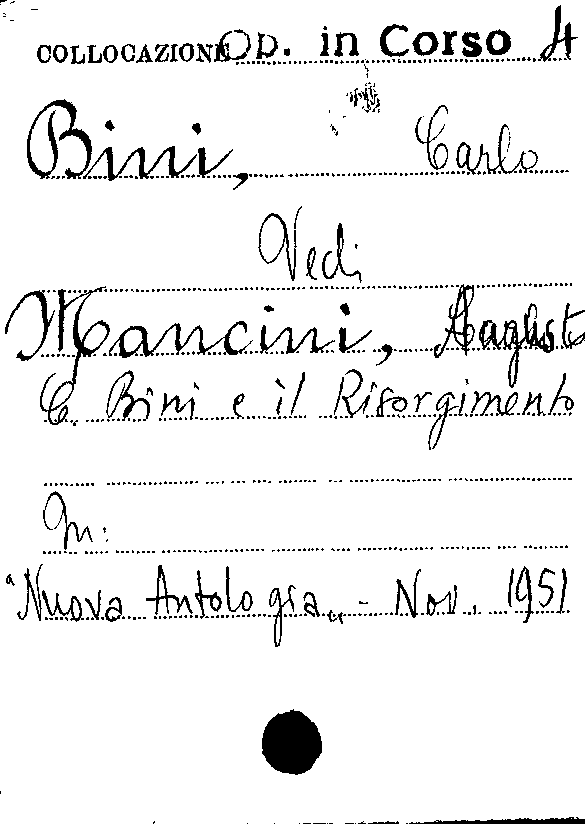 COLLOCAZIONE Op. in Corso 4
Bini, Carlo
Vedi
Mancini, Augusto
C. Bini e il Risorgimento
In:
"Nuova Antologia„ - Nov. 1951